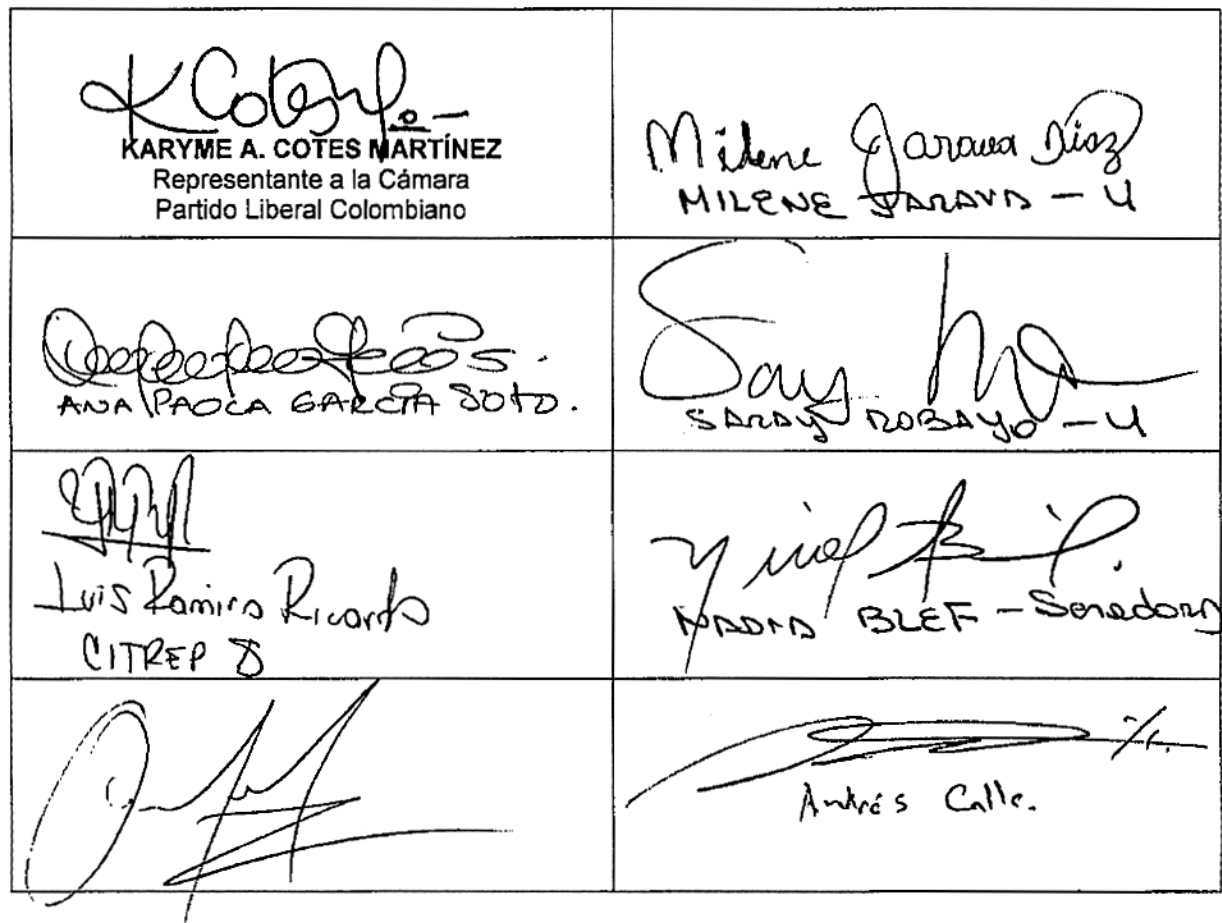 K Cotes
KARYME A. COTES MARTÍNEZ
Representante a la Cámara
Partido Liberal Colombiano
Milene Jarava Díaz
MILENE JARAVA - U
ANA PAOLA GARCÍA SOTO.
SARAY ROBAYO - U
Luis Ramiro Ricardo
CITREP 8
NADIA BLEF - Senadora
Andrés Calle.